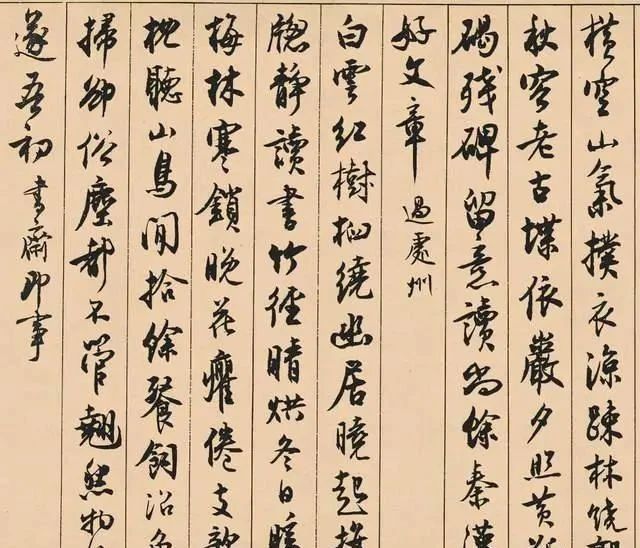 横空山氣撲衣涼疎林饒
秋容老古堞依巖夕照黄
碣残碑留意讀尚餘秦漢
好文章 過處州
白雲紅樹相繞幽居曉起推
窓静讀書竹径晴烘冬日暖
梅林寒鎖晚花癯倦支欹
枕聽山鳥閒拾餘餐飼沼魚
掃卻俗塵都不管翹然物外
遂吾初 書齋即事